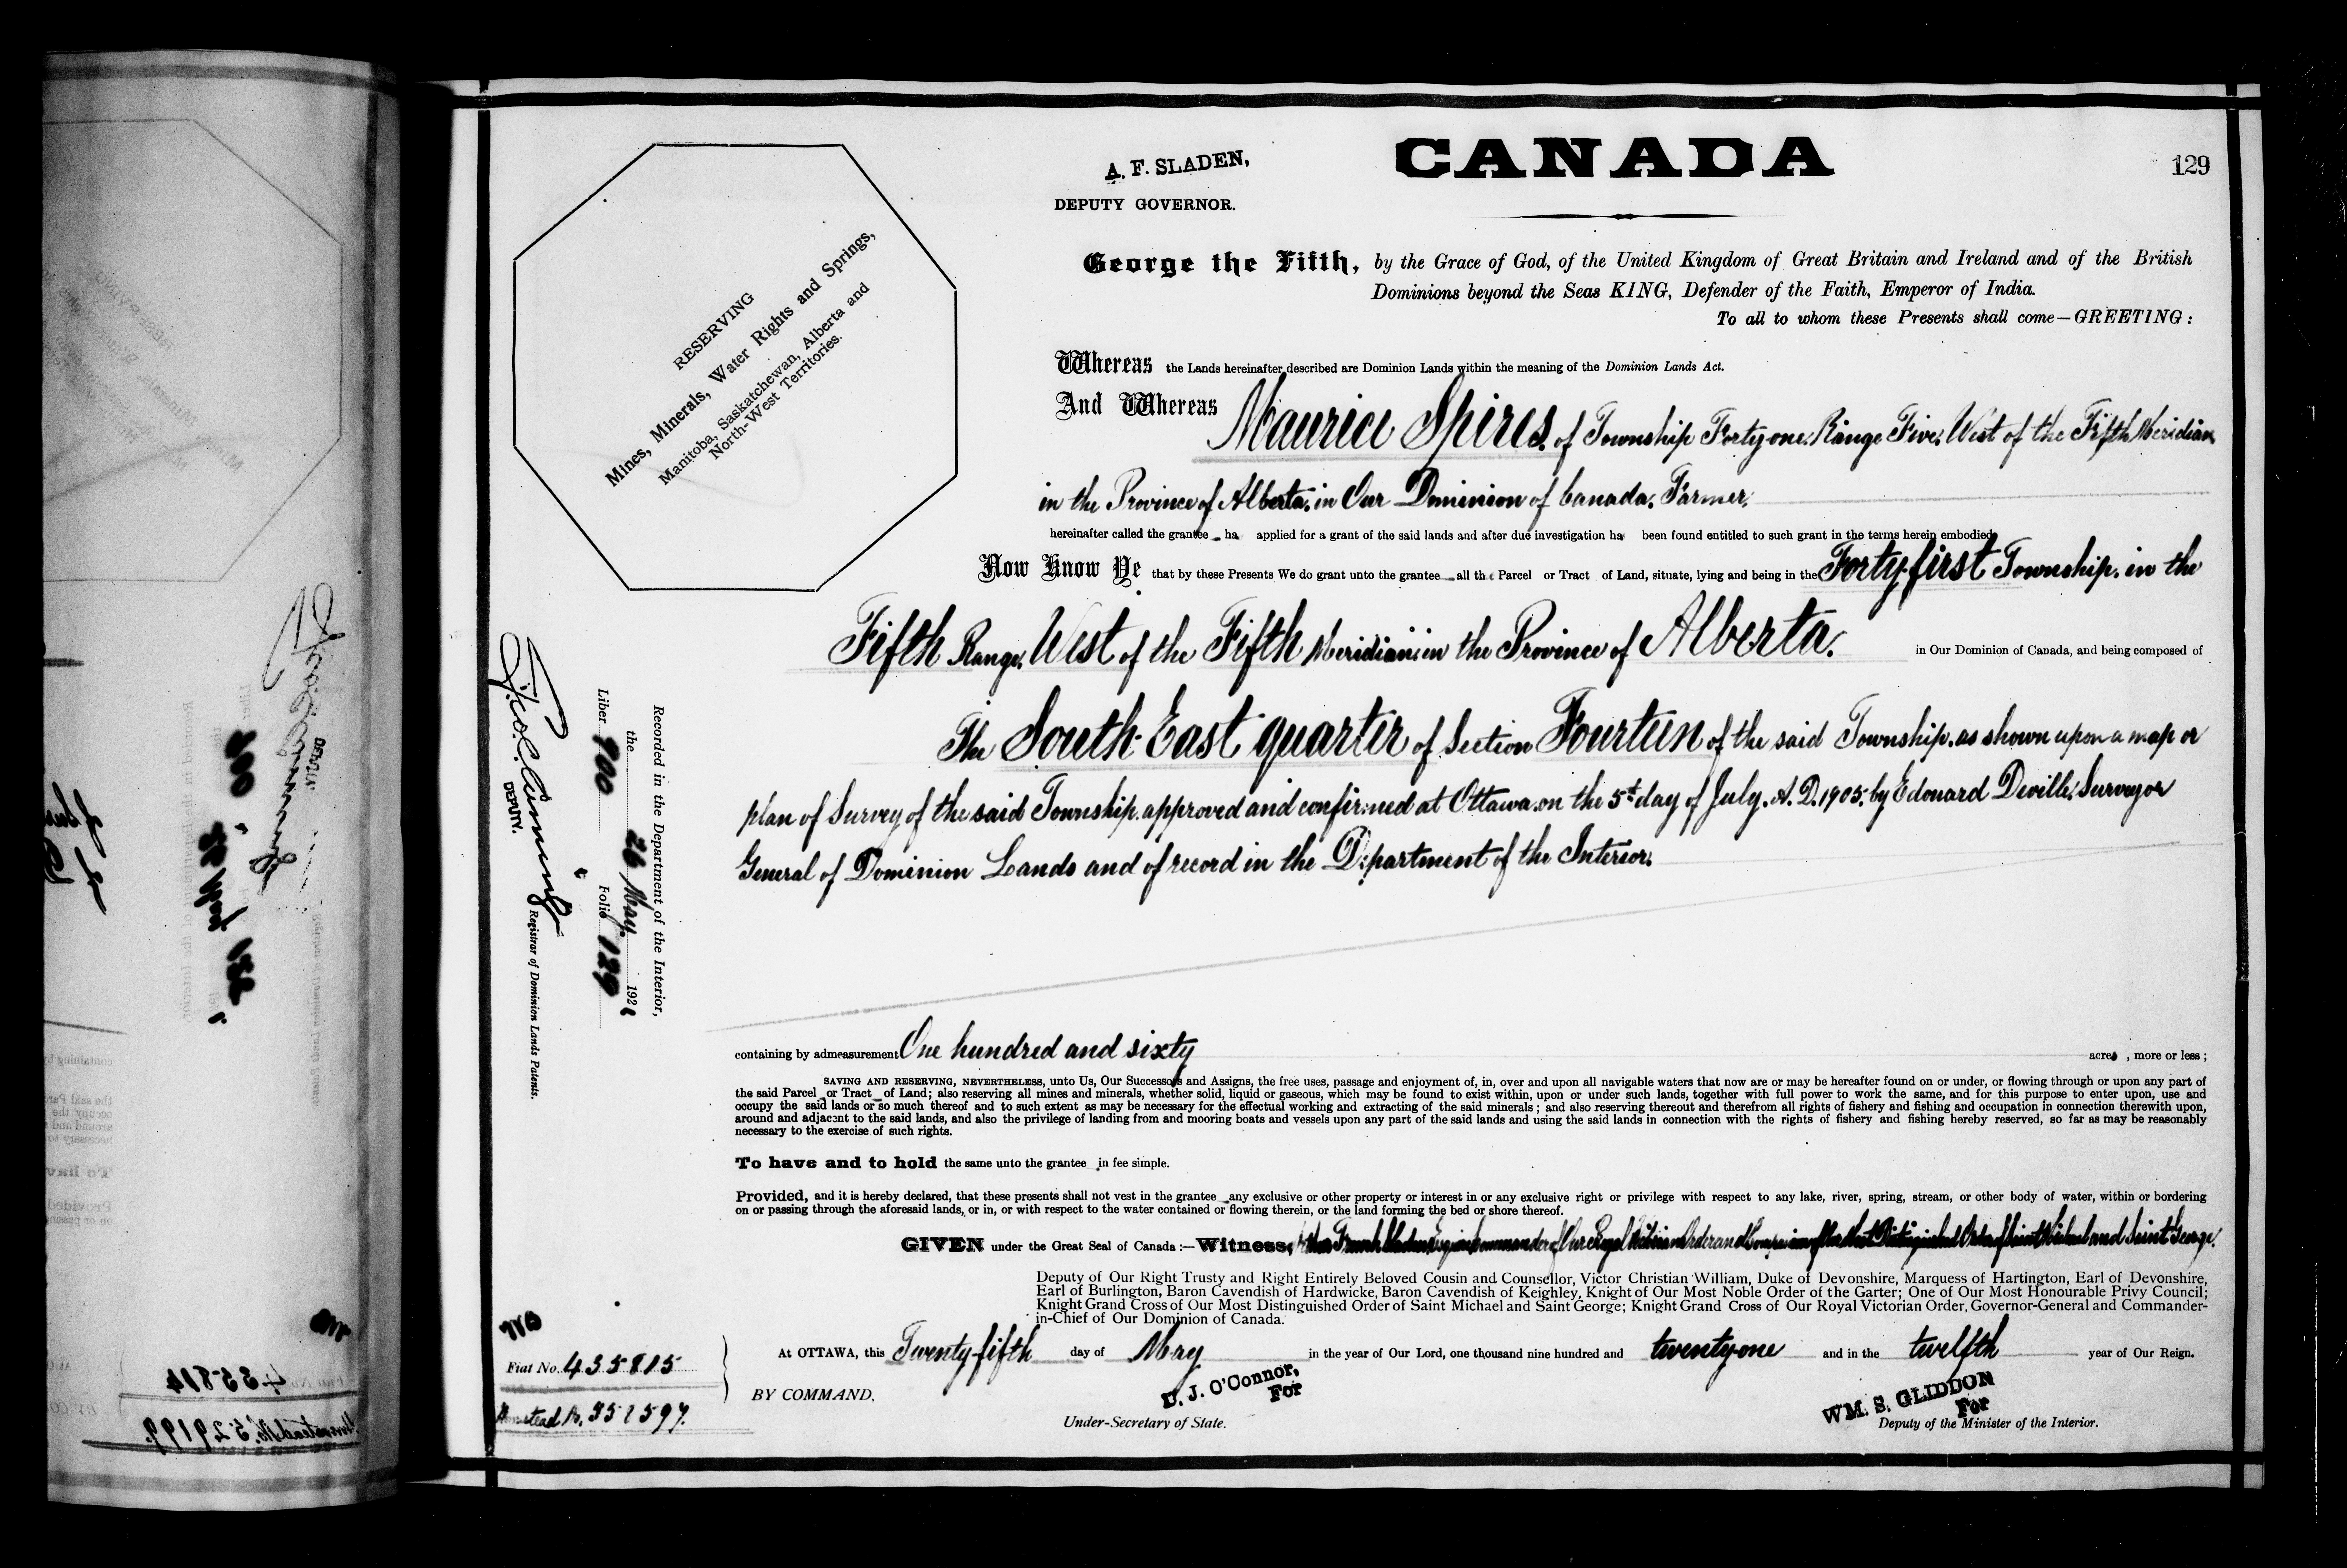 CANADA
129
A. F. SLADEN,
DEPUTY GOVERNOR.
George the Fifth, by the Grace of God, of the United Kingdom of Great Britain and Ireland and of the British
Dominions beyond the Seas KING, Defender of the Faith, Emperor of India.
To all to whom these Presents shall come—GREETING:
RESERVING
Mines, Minerals, Water Rights and Springs,
Manitoba, Saskatchewan, Alberta and
North-West Territories.
Whereas the Lands hereinafter described are Dominion Lands within the meaning of the Dominion Lands Act.
And Whereas Maurice Spires, of Township Forty-one, Range Five, West of the Fifth Meridian,
in the Province of Alberta, in Our Dominion of Canada, Farmer,
hereinafter called the grantee ha applied for a grant of the said lands and after due investigation ha been found entitled to such grant in the terms herein embodied.
Now Know Ye that by these Presents We do grant unto the grantee all the Parcel or Tract of Land, situate, lying and being in the Forty-first Township, in the
Fifth Range, West of the Fifth Meridian, in the Province of Alberta, in Our Dominion of Canada, and being composed of
The South-East quarter of Section Fourteen of the said Township, as shown upon a map or
plan of Survey of the said Township, approved and confirmed at Ottawa, on the 5th day of July, A. D. 1905, by Edouard Deville, Surveyor
General of Dominion Lands and of record in the Department of the Interior.
Recorded in the Department of the Interior,
the 26 May, 1921
Liber 900 Folio 129
DEPUTY. Registrar of Dominion Lands Patents.
containing by admeasurement One hundred and sixty acres, more or less;
SAVING AND RESERVING, NEVERTHELESS, unto Us, Our Successors and Assigns, the free uses, passage and enjoyment of, in, over and upon all navigable waters that now are or may be hereafter found on or under, or flowing through or upon any part of
the said Parcel or Tract of Land; also reserving all mines and minerals, whether solid, liquid or gaseous, which may be found to exist within, upon or under such lands, together with full power to work the same, and for this purpose to enter upon, use and
occupy the said lands or so much thereof and to such extent as may be necessary for the effectual working and extracting of the said minerals; and also reserving thereout and therefrom all rights of fishery and fishing and occupation in connection therewith upon,
around and adjacent to the said lands, and also the privilege of landing from and mooring boats and vessels upon any part of the said lands and using the said lands in connection with the rights of fishery and fishing hereby reserved, so far as may be reasonably
necessary to the exercise of such rights.
To have and to hold the same unto the grantee in fee simple.
Provided, and it is hereby declared, that these presents shall not vest in the grantee any exclusive or other property or interest in or any exclusive right or privilege with respect to any lake, river, spring, stream, or other body of water, within or bordering
on or passing through the aforesaid lands, or in, or with respect to the water contained or flowing therein, or the land forming the bed or shore thereof.
GIVEN under the Great Seal of Canada:—Witness, Arthur French Sladen, Esquire, Commander of Our Royal Victorian Order and Companion of Our Most Distinguished Order of Saint Michael and Saint George,
Deputy of Our Right Trusty and Right Entirely Beloved Cousin and Counsellor, Victor Christian William, Duke of Devonshire, Marquess of Hartington, Earl of Devonshire,
Earl of Burlington, Baron Cavendish of Hardwicke, Baron Cavendish of Keighley, Knight of Our Most Noble Order of the Garter; One of Our Most Honourable Privy Council;
Knight Grand Cross of Our Most Distinguished Order of Saint Michael and Saint George; Knight Grand Cross of Our Royal Victorian Order, Governor-General and Commander-
in-Chief of Our Dominion of Canada.
At OTTAWA, this Twenty-fifth day of May in the year of Our Lord, one thousand nine hundred and twenty-one and in the twelfth year of Our Reign.
Fiat No. 435815
BY COMMAND,
U. J. O'Connor,
For
Under-Secretary of State.
WM. S. GLIDDON
For
Deputy of the Minister of the Interior.